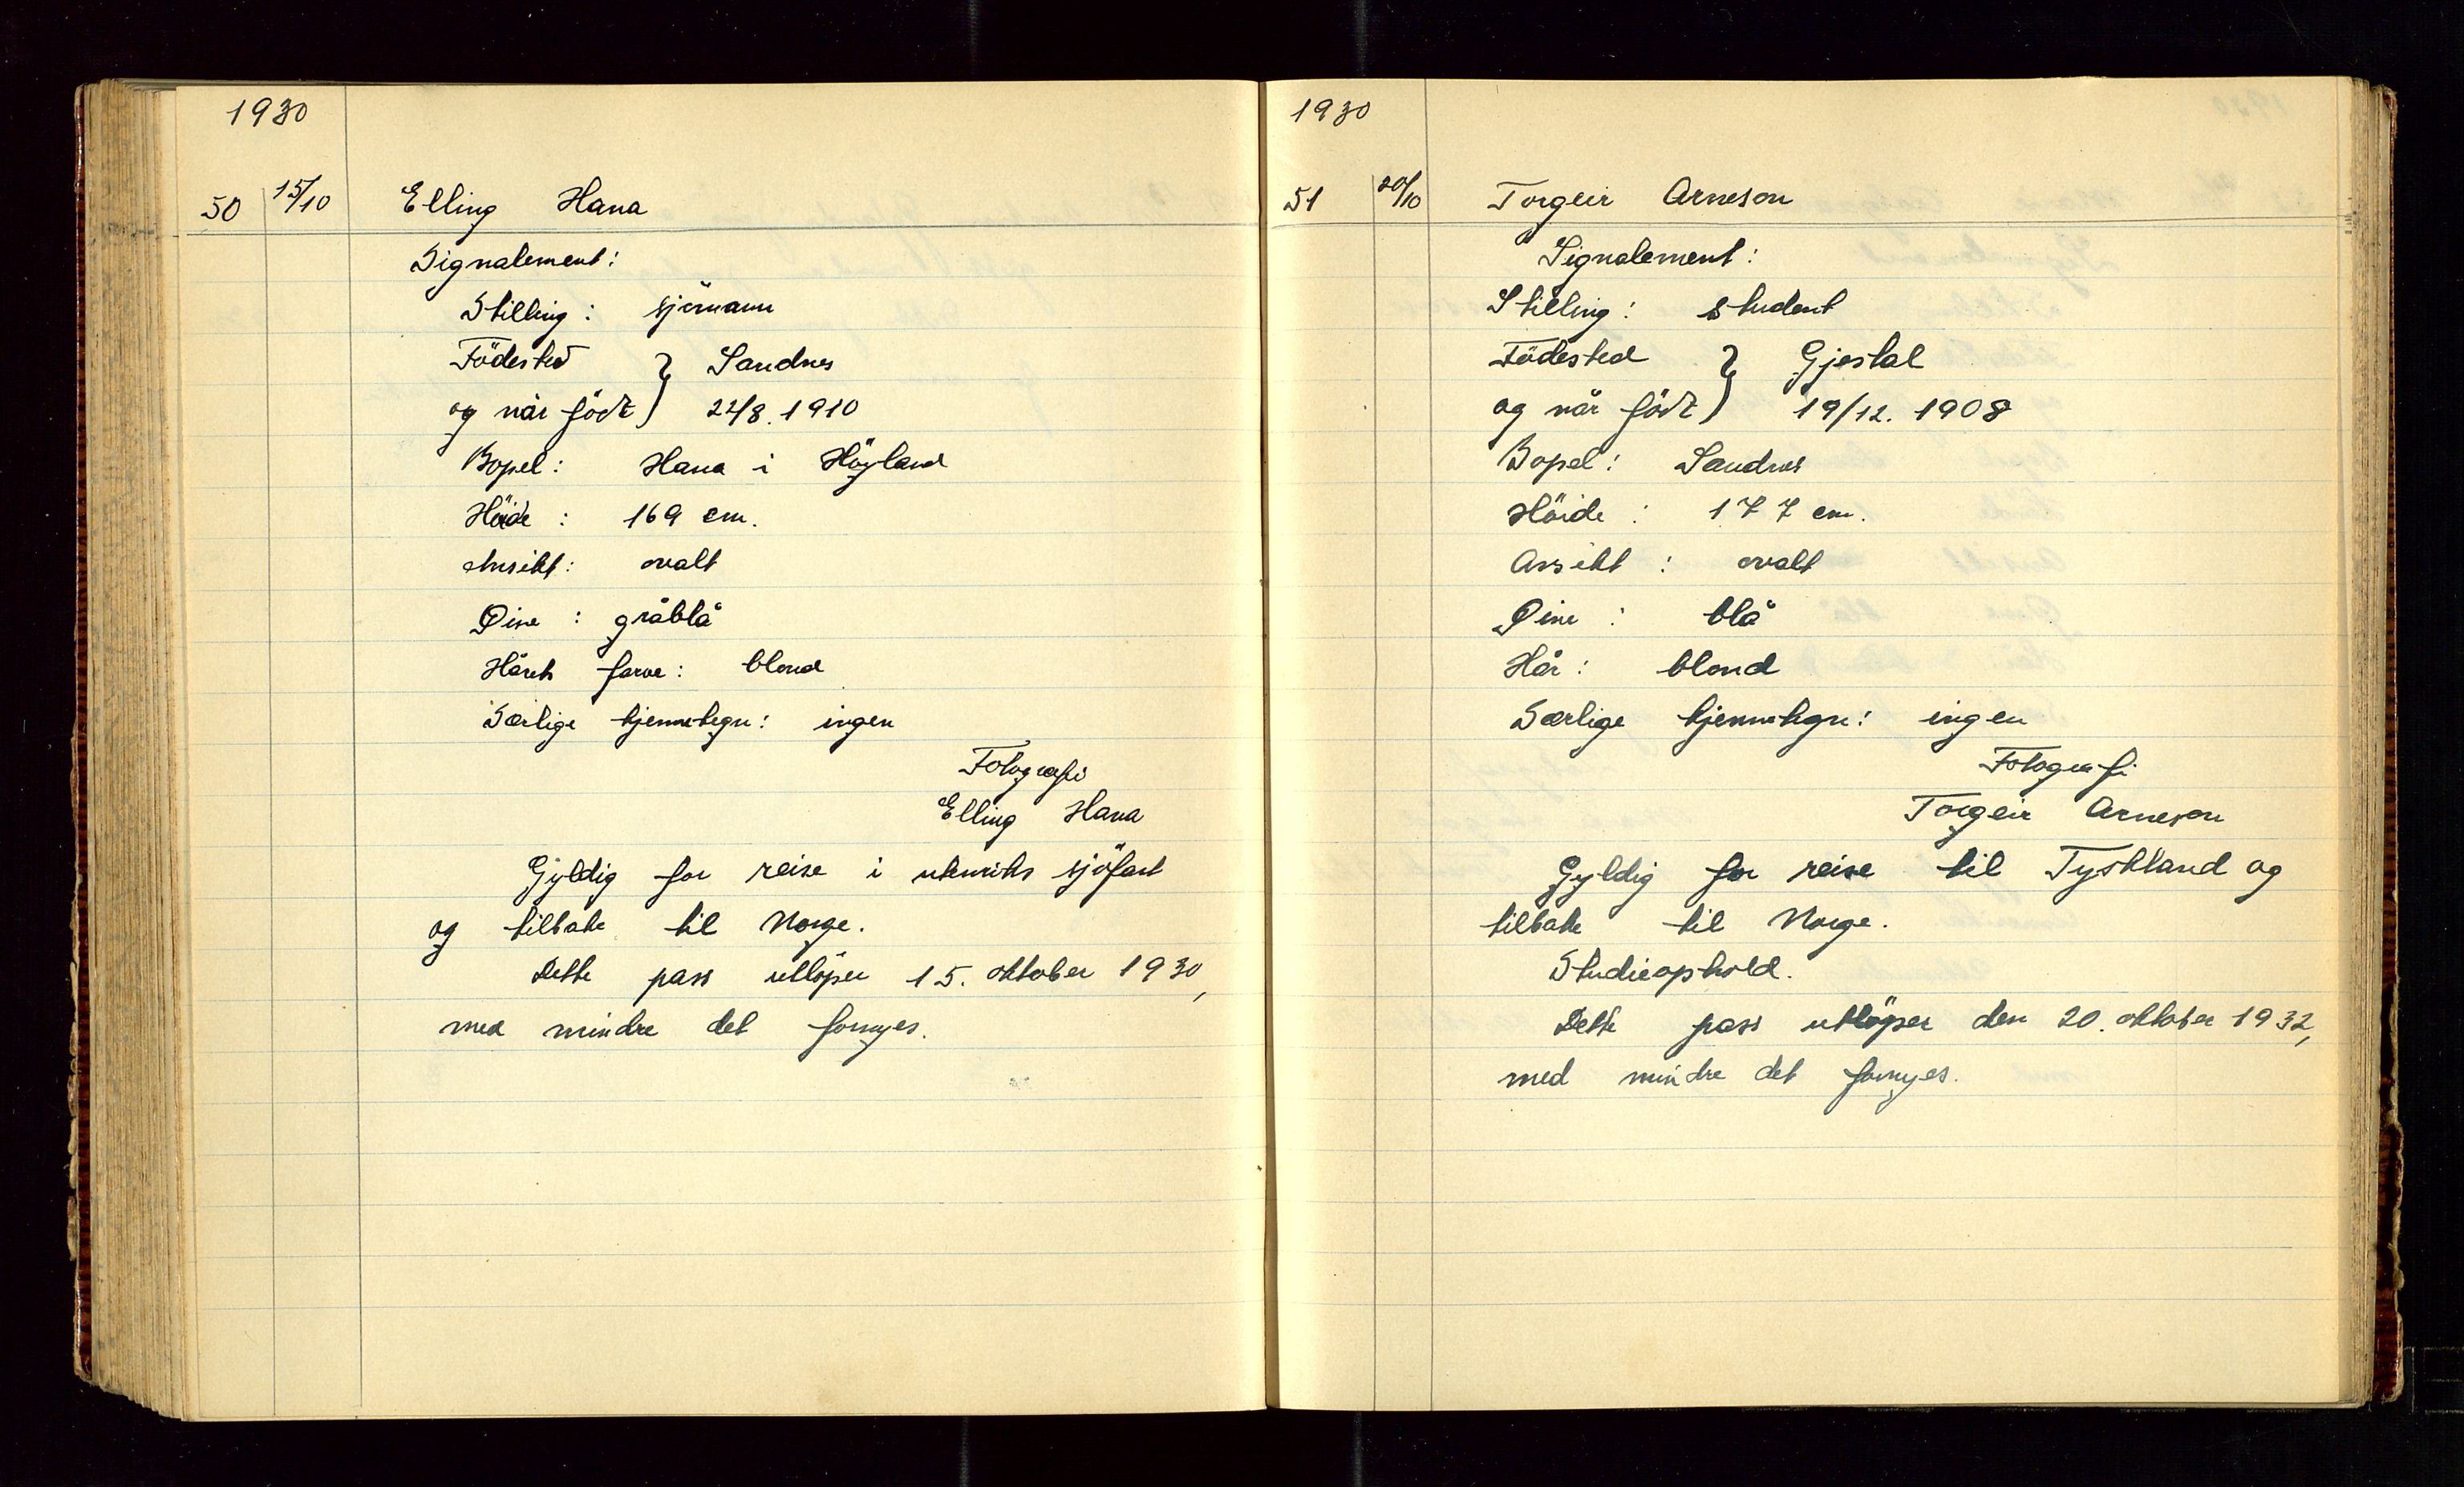 1930
50 15/10 Elling Hana
Signalement:
Stilling: sjömann
Födested } Sandnes
og når födt } 22/8. 1910
Bopel: Hana i Höyland
Höide: 169 cm.
Ansikt: ovalt
Øine: gråblå
Hårets farve: blond
Særlige kjennetegn: ingen
Fotografi
Elling Hana
Gyldig for reise i utenriks sjöfart
og tilbake til Norge.
Dette pass utlöper 15. oktober 1930,
med mindre det fornyes.
1930
51 20/10 Torgeir Arneson
Signalement:
Stilling: student
Födested } Gjestal
og når födt } 19/12. 1908
Bopel: Sandnes
Höide: 177 cm.
Ansikt: ovalt
Øine: blå
Hår: blond
Særlige kjennetegn: ingen
Fotografi
Torgeir Arneson
Gyldig for reise til Tyskland og
tilbake til Norge.
Studieophold.
Dette pass utlöper den 20. oktober 1932,
med mindre det fornyes.